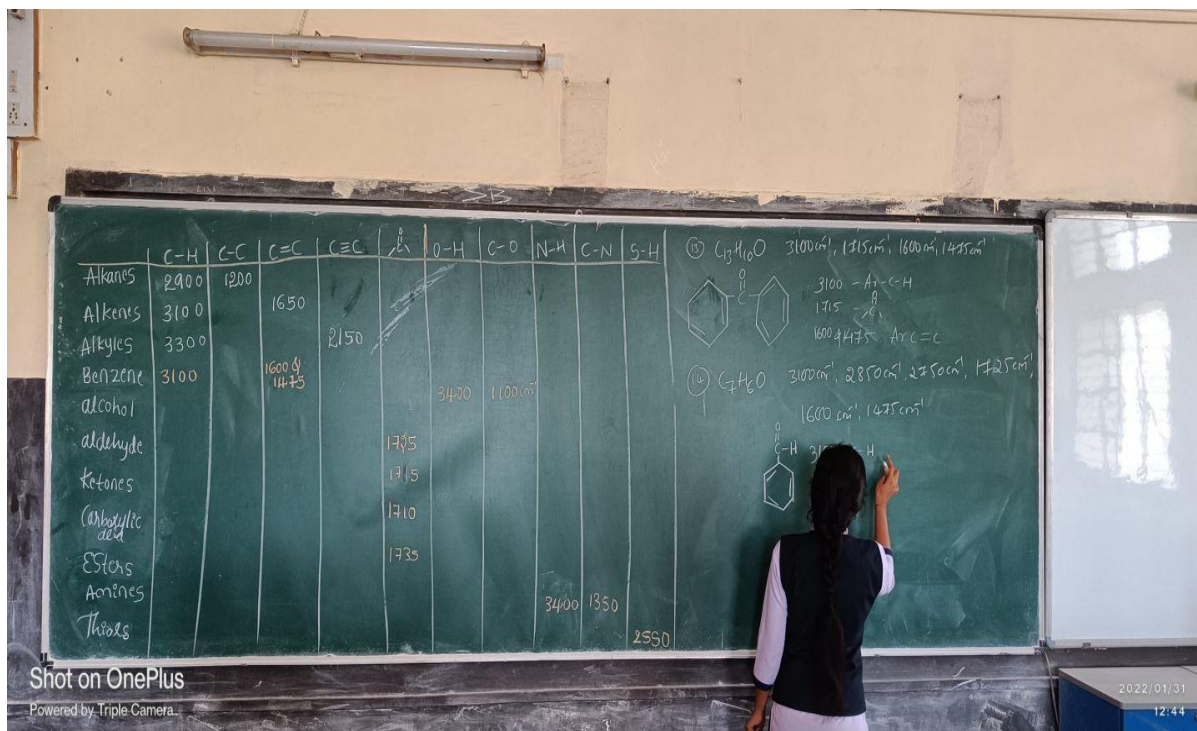 C-H C-C C=C C≡C O-H C-O N-H C-N S-H
Alkanes 2900 1200
Alkenes 3100 1650
Alkyles 3300 2150
Benzene 3100 1600 & 1475
alcohol 3400 1100cm⁻¹
aldehyde 1725
Ketones 1715
Carboxylic acid 1710
Esters 1735
Amines 3400 1350
Thiols 2550
⑬ C₁₃H₁₀O 3100cm⁻¹, 1715cm⁻¹, 1600cm⁻¹, 1475cm⁻¹
O
C
3100 - Ar-C-H
1715 -
1600 & 1475 Ar C=C
⑭ C₇H₆O 3100cm⁻¹, 2850cm⁻¹, 2750cm⁻¹, 1725cm⁻¹,
1600cm⁻¹, 1475cm⁻¹
O
C-H
H
Shot on OnePlus
Powered by Triple Camera
2022/01/31
12:44